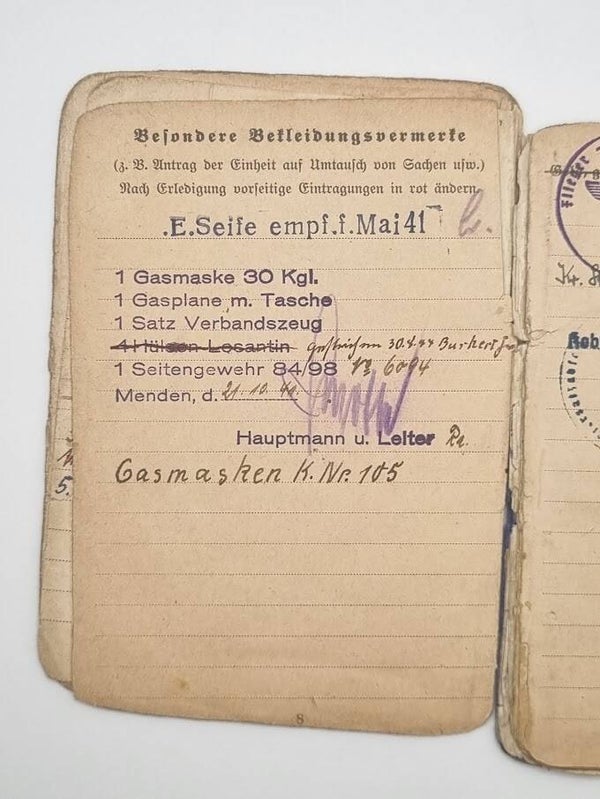 Besondere Bekleidungsvermerke
(z. B. Antrag der Einheit auf Umtausch von Sachen usw.)
Nach Erledigung vorseitige Eintragungen in rot ändern
.E.Seife empf.f.Mai 41
1 Gasmaske 30 Kgl.
1 Gasplane m. Tasche
1 Satz Verbandszeug
4 Hülsen Losantin gestrichen 30.4.44
1 Seitengewehr 84/98 6094
Menden, d. 21.10.
Hauptmann u. Leiter
Gasmasken K. Nr. 105
8
Flieger
5.